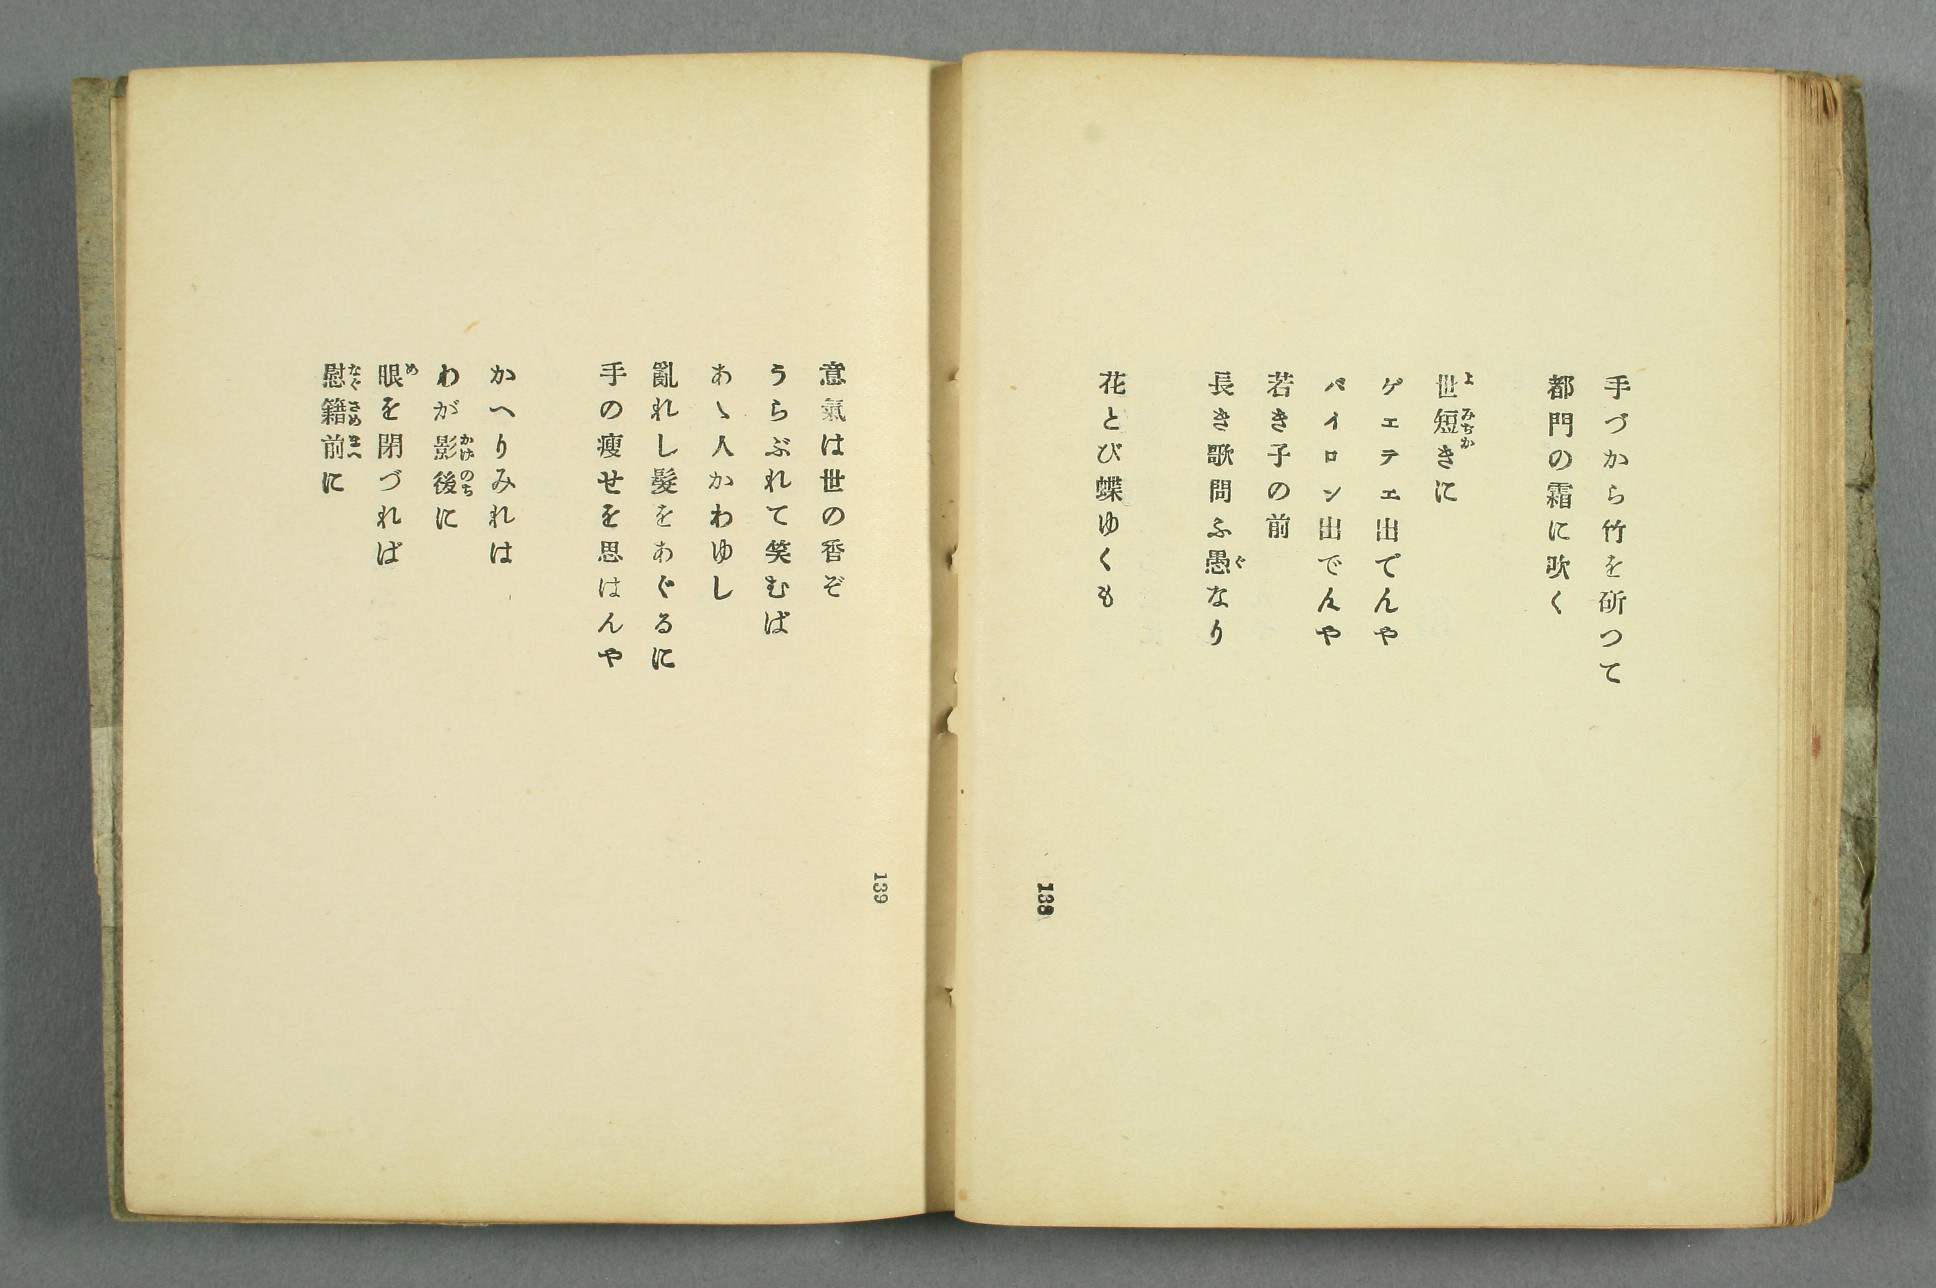 手づから竹を斫つて
都門の霜に吹く
世短きに
よ みぢか
ゲエテエ出でんや
バイロン出でんや
若き子の前
長き歌問ふ愚なり
ぐ
花とび蝶ゆくも
138
意氣は世の香ぞ
うらぶれて笑むば
あゝ人かわゆし
亂れし髮をあぐるに
手の瘦せを思はんや
かへりみれは
わが影後に
かげのち
眼を閉づれば
め
慰籍前に
なぐさめまへ
139